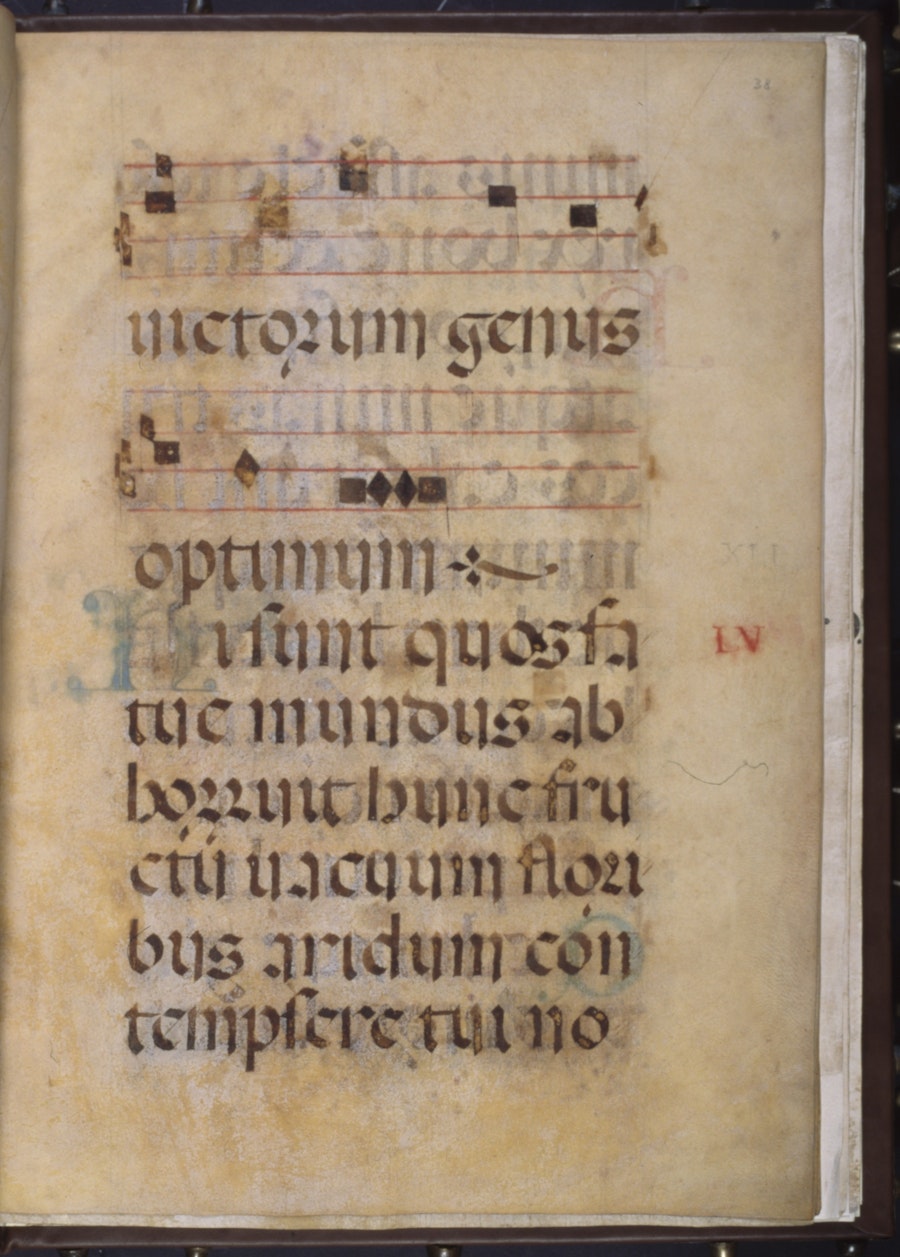 38
uictorum genus
optimum
Hi sunt quos fa
tue mundus ab
horruit hunc fru
ctu uacuum flori
bus aridum con
tempsere tui no
LV